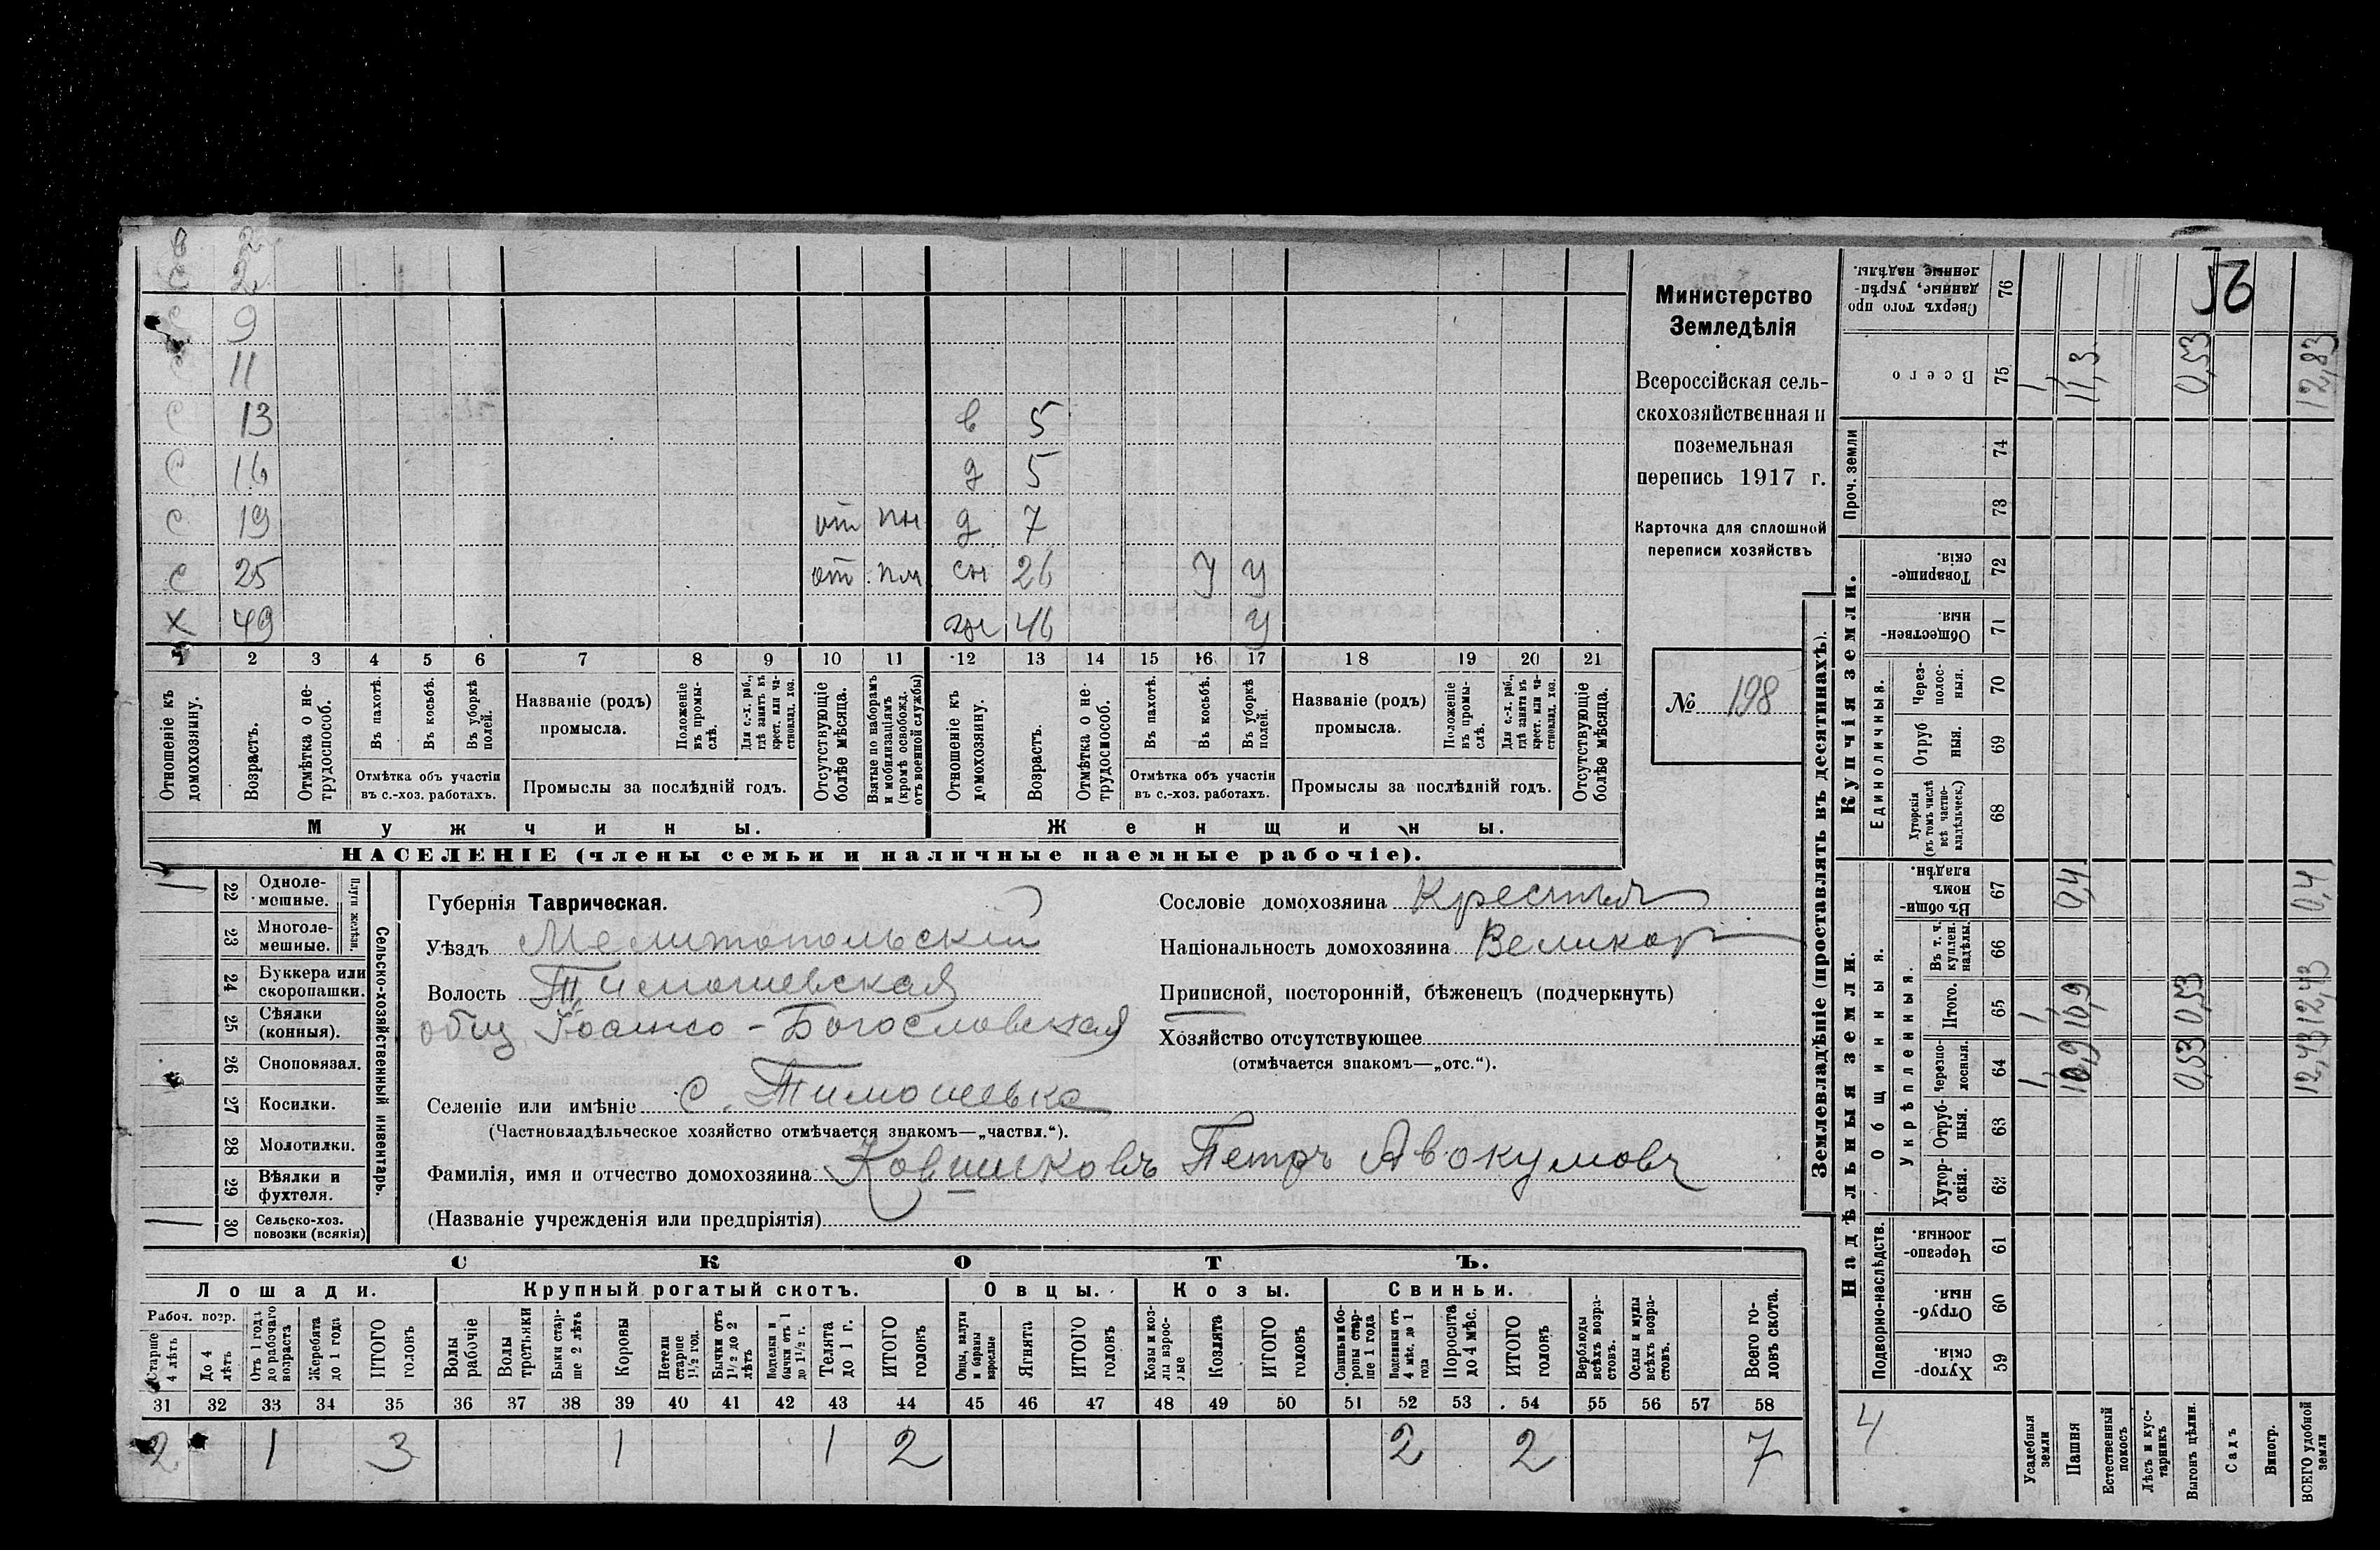 в 2
с 2
с 9
с 11
с 13 в 5
с 16 д 5
с 19 от пн д 7
с 25 от пм сн 26 У У
х 49 жн 46 У
1 2 3 4 5 6 7 8 9 10 11 12 13 14 15 16 17 18 19 20 21
Отношеніе къ домохозяину.
Возрастъ.
Отмѣтка о не-трудоспособ.
Въ пахотѣ.
Въ косьбѣ.
Въ уборкѣ полей.
Отмѣтка объ участіи
въ с.-хоз. работахъ.
Названіе (родъ)
промысла.
Положеніе въ промы-слѣ.
Для с.-х. раб., гдѣ занятъ въ крест. или ча-стновлад. хоз.
Промыслы за послѣдній годъ.
Отсутствующіе болѣе мѣсяца.
Взятые по наборамъ и мобилизаціямъ (кромѣ освобожд. отъ военной службы)
Отношеніе къ домохозяину.
Возрастъ.
Отмѣтка о не-трудоспособ.
Въ пахотѣ.
Въ косьбѣ.
Въ уборкѣ полей.
Отмѣтка объ участіи
въ с.-хоз. работахъ.
Названіе (родъ)
промысла.
Положеніе въ промы-слѣ.
Для с.-х. раб., гдѣ занята въ крест. или ча-стновлад. хоз.
Промыслы за послѣдній годъ.
Отсутствующіе болѣе мѣсяца.
Мужчины.
Женщины.
НАСЕЛЕНІЕ (члены семьи и наличные наемные рабочіе).
Министерство
Земледѣлія
Всероссійская сель-
скохозяйственная и
поземельная
перепись 1917 г.
Карточка для сплошной
переписи хозяйствъ
№ 198
Сельско-хозяйственный инвентарь.
Плуги желѣзн.
22 Одноле-мешные.
23 Многоле-мешные.
24 Буккера или скоропашки.
25 Сѣялки (конныя).
26 Сноповязал.
27 Косилки.
28 Молотилки.
29 Вѣялки и фухтеля.
30 Сельско-хоз. повозки (всякія)
Губернія Таврическая.
Уѣздъ Мелитопольскій
Волость Тимошевская
общ Іоанно-Богословская
Селеніе или имѣніе с. Тимошевка
(Частновладѣльческое хозяйство отмѣчается знакомъ—„частвл.“).
Фамилія, имя и отчество домохозяина Ковшиковъ Петръ Авокумовъ
(Названіе учрежденія или предпріятія)
Сословіе домохозяина Крестьян
Національность домохозяина Великор
Приписной, посторонній, бѣженецъ (подчеркнуть)
Хозяйство отсутствующее
(отмѣчается знакомъ—„отс.“).
СКОТЪ.
Лошади. Крупный рогатый скотъ. Овцы. Козы. Свиньи.
Рабоч. возр.
Старше 4 лѣтъ
До 4 лѣтъ
Отъ 1 года до рабочаго возраста
Жеребята до 1 года
ИТОГО головъ
Волы рабочіе
Волы третьяки
Быки стар-ше 2 лѣтъ
Коровы
Нетели старше 1 1/2 год.
Бычки отъ 1 1/2 до 2 лѣтъ
Подтелки и бычки отъ 1 до 1 1/2 г.
Телята до 1 г.
ИТОГО головъ
Овцы, валухи и бараны взрослые
Ягнята
ИТОГО головъ
Козы и коз-лы взрос-лые
Козлята
ИТОГО головъ
Свиньи и бо-ровы стар-ше 1 года
Подсвинки отъ 4 мѣс. до 1 года
Поросята до 4 мѣс.
ИТОГО головъ
Верблюды всѣхъ возра-стовъ.
Ослы и мулы всѣхъ возра-стовъ.
Всего го-ловъ скота.
31 32 33 34 35 36 37 38 39 40 41 42 43 44 45 46 47 48 49 50 51 52 53 54 55 56 57 58
2 1 3 1 1 2 2 2 7
Землевладѣніе (проставлять въ десятинахъ).
Надѣльныя земли.
Купчія земли.
Проч. земли
Подворно-наслѣдств.
Общинныя.
Укрѣпленныя.
Единоличныя.
59 Хутор-скія.
60 Отруб-ныя.
61 Черезпо-лосныя.
62 Хутор-скія.
63 Отруб-ныя.
64 Черезпо-лосныя. 1, 10,9 0,53 12,43
65 Итого. 1, 10,9 0,53 12,43
66 Въ т. ч. куплен. надѣлы.
67 Въ общи-номъ владѣн. 0,4 0,4
68 Хуторскія (въ томъ числѣ всѣ частно-владѣльческ.)
69 Отруб-ныя.
70 Через-полос-ныя.
71 Обществен-ныя.
72 Товарище-скія.
73
74
75 Всего 1, 11,3 0,53 12,83
76 Сверхъ того про-данные, укрѣп-ленные надѣлы.
56
4
Усадебныя земли
Пашня
Естественный покосъ
Лѣсъ и кус-тарникъ
Выгонъ цѣлин.
Садъ
Виногр.
ВСЕГО удобной земли